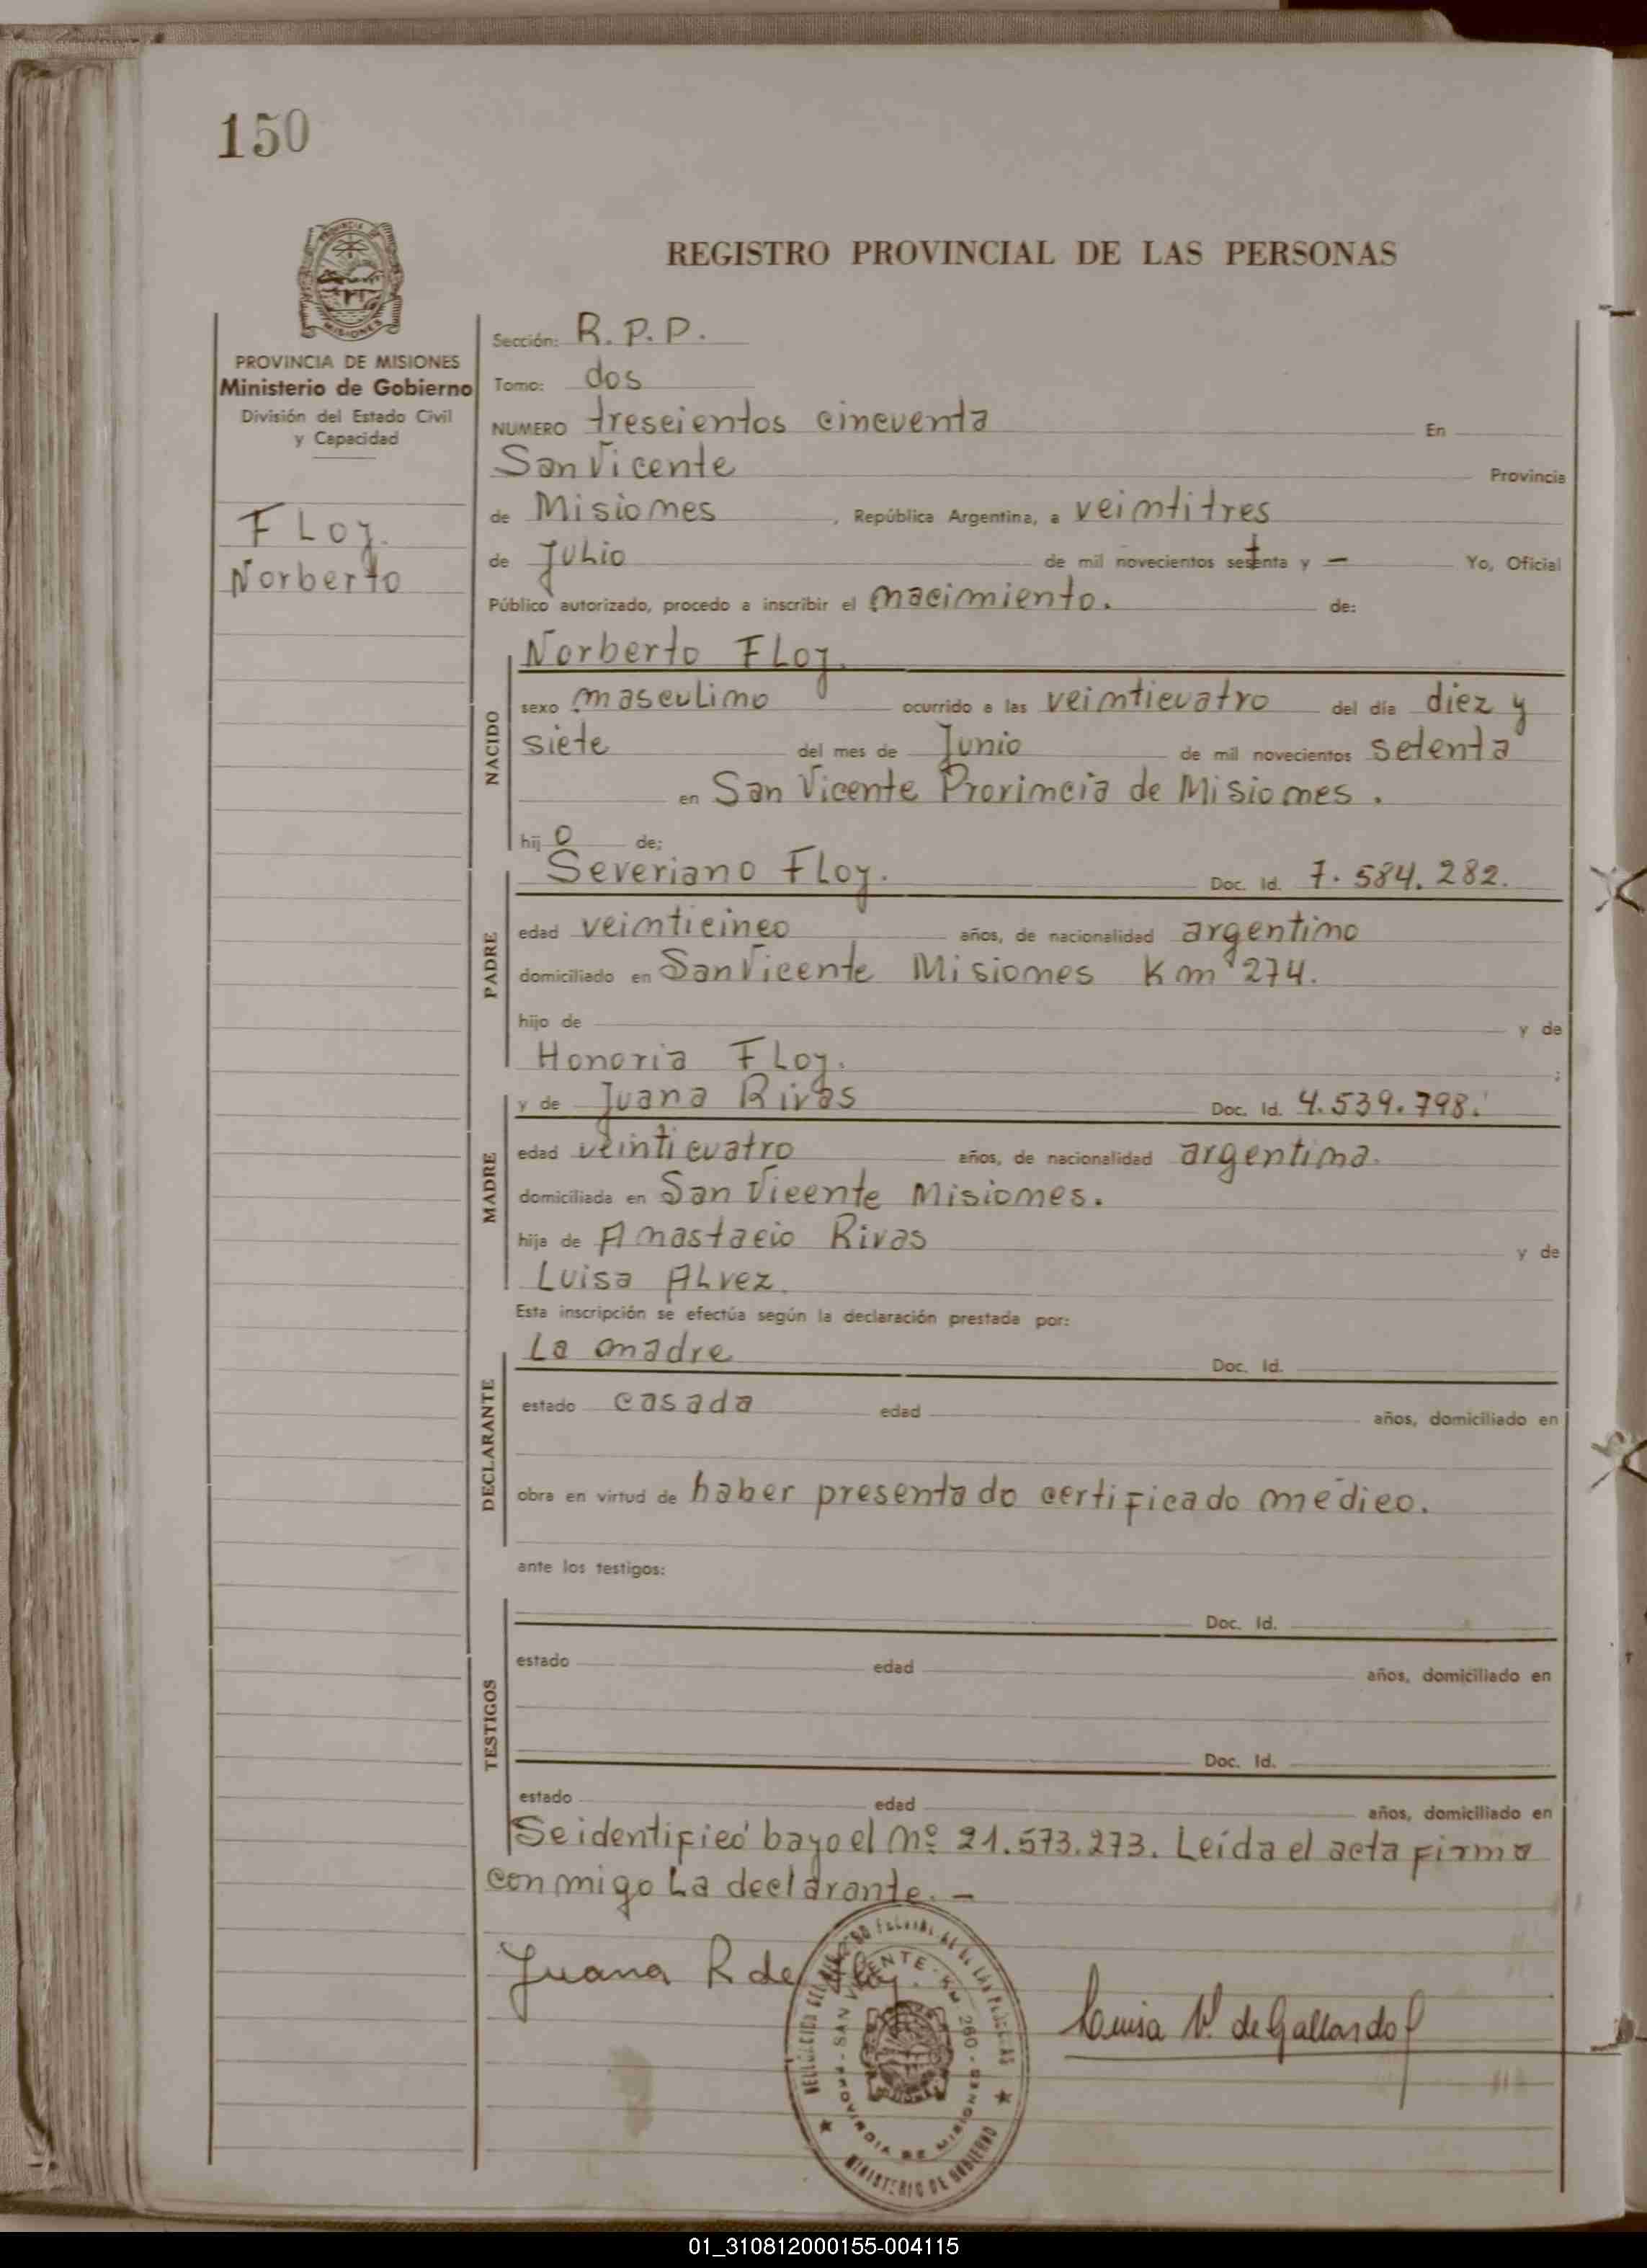 150
REGISTRO PROVINCIAL DE LAS PERSONAS
PROVINCIA DE MISIONES
Ministerio de Gobierno
División del Estado Civil
y Capacidad
FLoy.
Norberto
Sección: R.P.P.
Tomo: dos
NUMERO treseientos cincuenta En
San Vicente Provincia
de Misiones, República Argentina, a veintitres
de Julio de mil novecientos setenta y — Yo, Oficial
Público autorizado, procedo a inscribir el nacimiento. de:
NACIDO
Norberto FLoy.
sexo masculino ocurrido a las veinticuatro del día diez y
siete del mes de Junio de mil novecientos setenta
en San Vicente Provincia de Misiones.
hijo de;
PADRE
Severiano FLoy. Doc. Id. 7.584.282.
edad veinticinco años, de nacionalidad argentino
domiciliado en San Vicente Misiones Km 274.
hijo de y de
Honoria FLoy. ;
MADRE
y de Juana Rivas Doc. Id. 4.539.798.
edad veinticuatro años, de nacionalidad argentina.
domiciliada en San Vicente Misiones.
hija de Anastacio Rivas y de
Luisa ALvez.
Esta inscripción se efectúa según la declaración prestada por:
DECLARANTE
La madre Doc. Id.
estado casada edad años, domiciliado en
obra en virtud de haber presentado certificado medico.
ante los testigos:
TESTIGOS
Doc. Id.
estado edad años, domiciliado en
Doc. Id.
estado edad años, domiciliado en
Se identificó bayo el Nº 21.573.273. Leída el acta firma
conmigo La declarante. —
Juana R de Floy.
Luisa V. de Gallardo
SAN VICENTE - KM 260 - PROVINCIA DE MISIONES
MINISTERIO DE GOBIERNO
01_310812000155-004115